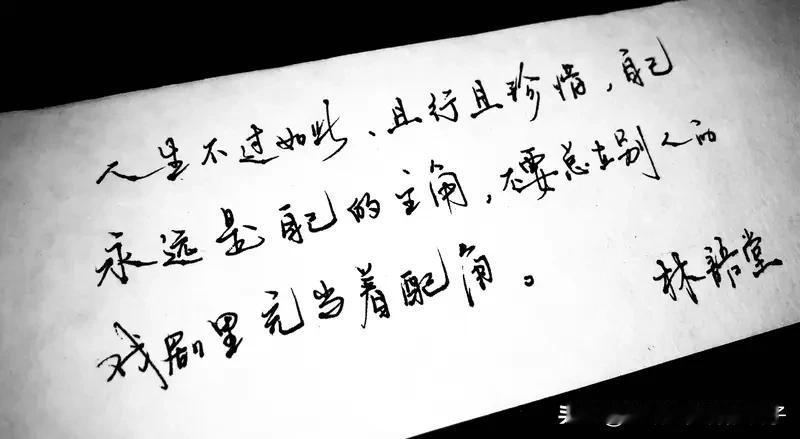 人生不过如此、且行且珍惜，自己
永远是自己的主角，不要总在别人的
戏剧里充当着配角。
林语堂